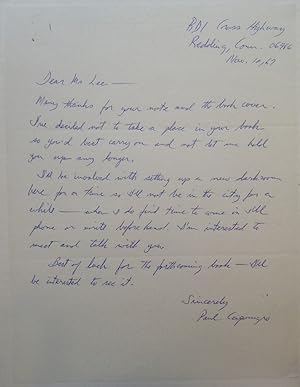 RD1 Cross Highway
Redding, Conn. 06896
Nov. 10, 67
Dear Mr Lee —
Many thanks for your note and the book cover.
I've decided not to take a place in your book
so you'd best carry on and not let me hold
you up any longer.
I'll be involved with setting up a new darkroom
here for a time so I'll not be in the city for a
while — when I do find time to come in I'll
phone or write beforehand. I'm interested to
meet and talk with you.
Best of luck for the forthcoming book — I'll
be interested to see it.
Sincerely
Paul Caponigro